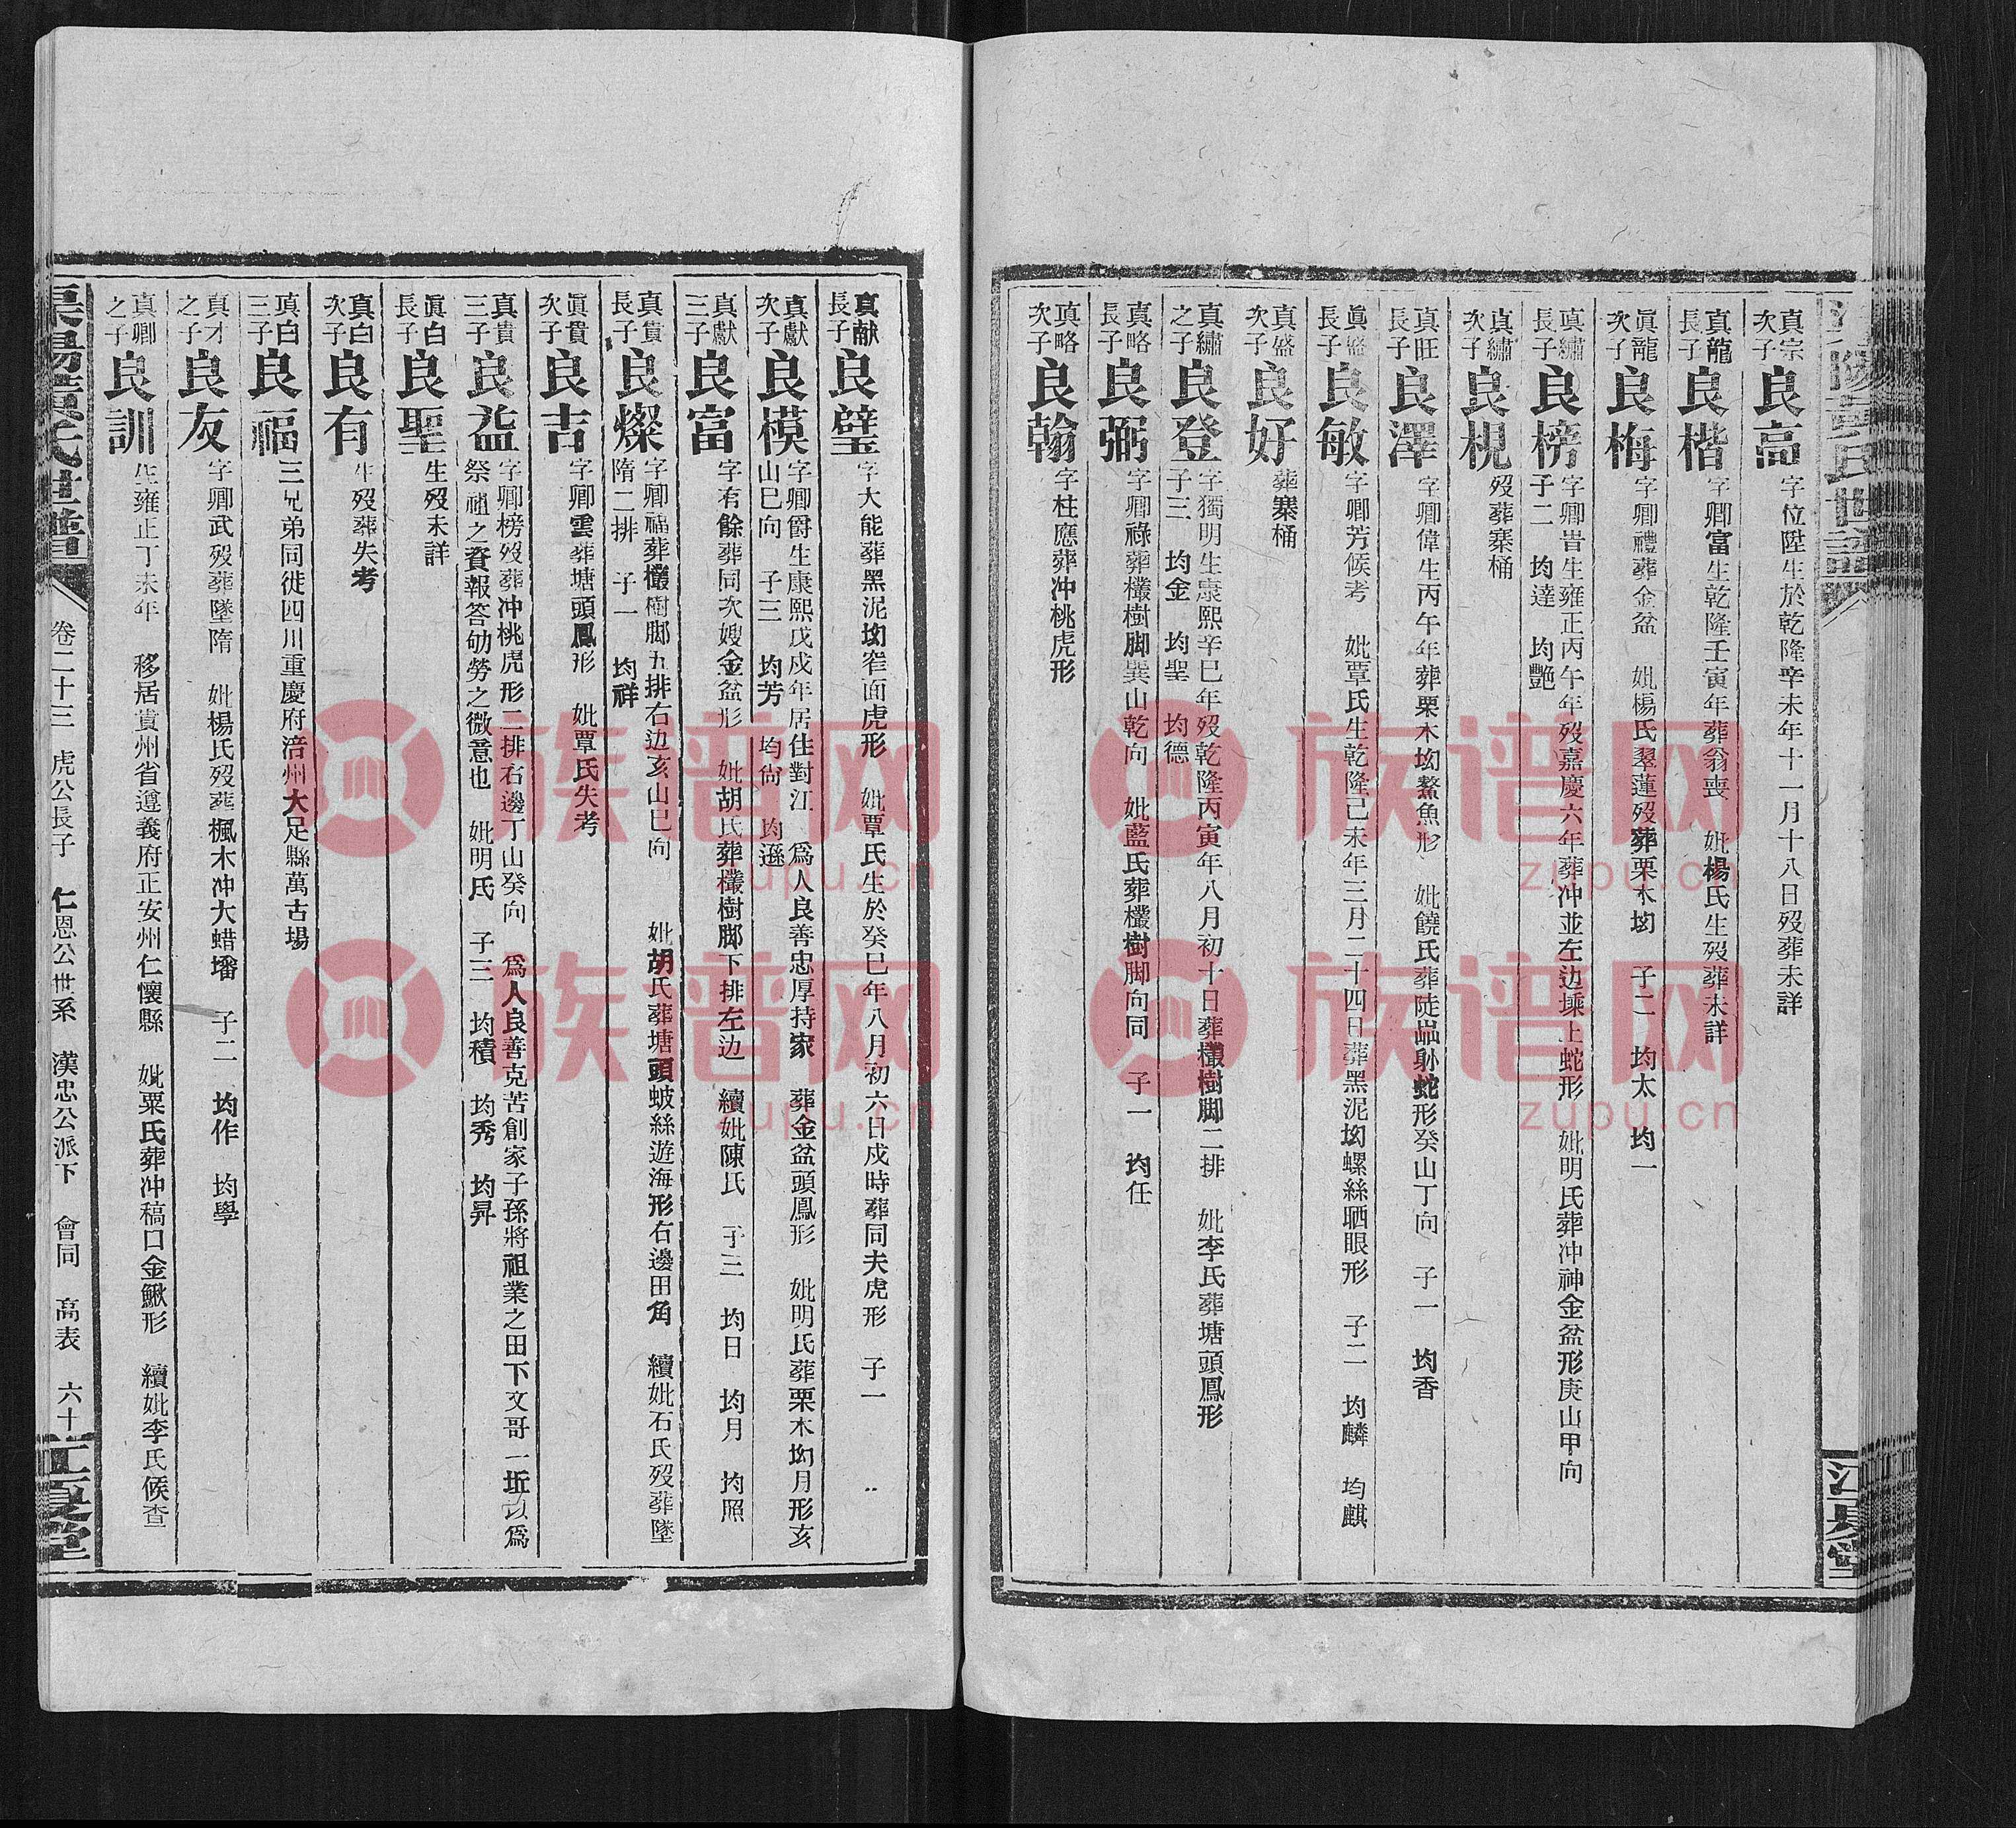 真宗次子 良高 字位陞生於乾隆辛未年十一月十八日歿葬未詳
真龍長子 良楷 字卿富生乾隆壬寅年葬翁喪 妣楊氏生歿葬未詳
眞龍次子 良梅 字卿禮葬金盆 妣楊氏翠蓮歿葬栗木坳 子二 均太 均一
真繡長子 良榜 字卿昔生雍正丙午年歿嘉慶六年葬冲並左边塖上蛇形 妣明氏葬冲神金盆形庚山甲向
子二 均達 均艷
真繡次子 良梘 歿葬寨桶
真旺長子 良澤 字卿偉生丙午年葬栗木坳鰲魚形 妣饒氏葬陡 蛇形癸山丁向 子一 均香
眞盛長子 良敏 字卿芳候考 妣覃氏生乾隆已未年三月二十四日葬黑泥坳螺絲晒眼形 子二 均麟 均麒
真盛次子 良好 葬寨桶
真繡之子 良登 字獨明生康熙辛巳年歿乾隆丙寅年八月初十日葬欉樹脚二排 妣李氏葬塘頭鳳形
子三 均金 均聖 均德
真略長子 良弼 字卿祿葬欉樹脚巽山乾向 妣藍氏葬欉樹脚向同 子一 均任
真略次子 良翰 字柱應葬冲桃虎形
江夏堂
真献長子 良璧 字大能葬黑泥坳 面虎形 妣覃氏生於癸巳年八月初六日戍時葬同夫虎形 子一
真獻次子 良模 字卿爵生康熙戊戍年居住對江 為人良善忠厚持家 葬金盆頭鳳形 妣明氏葬栗木坳月形亥
山巳向 子三 均芳 均尙 均遜
真獻三子 良富 字有餘葬同次嫂金盆形 妣胡氏葬欉樹脚下排左边 續妣陳氏 子三 均日 均月 均照
真貴長子 良燦 字卿福葬欉樹脚五排右边亥山巳向 妣胡氏葬塘頭蚾絲遊海形右邊田角 續妣石氏歿葬墜
隋二排 子一 均祥
眞貴次子 良吉 字卿雲葬塘頭鳳形 妣覃氏失考
真貴三子 良益 字卿榜歿葬冲桃虎形二排右邊丁山癸向 為人良善克苦創家子孫將祖業之田下文哥一坵以為
祭祖之資報答劬勞之微意也 妣明氏 子三 均積 均秀 均昇
眞白長子 良聖 生歿未詳
真白次子 良有 生歿葬失考
真白三子 良福 三兄弟同徙四川重慶府涪州大足縣萬古場
真才之子 良友 字卿武歿葬墜隋 妣楊氏歿葬楓木冲大蜡墦 子二 均作 均學
真卿之子 良訓 生雍正丁未年 移居貴州省遵義府正安州仁懷縣 妣粟氏葬冲稿口金鰍形 續妣李氏候查
卷二十三 虎公長子 仁恩公世系 漢忠公派下 會同 高表 六十
江夏堂
族谱网
zupu.cn
族谱网
zupu.cn
族谱网
zupu.cn
族谱网
zupu.cn